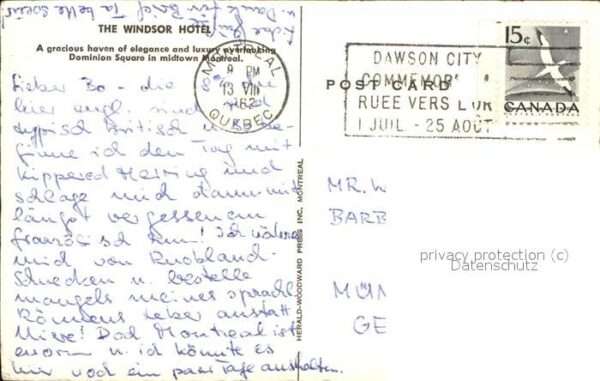 THE WINDSOR HOTEL
A gracious haven of elegance and luxury overlooking
Dominion Square in midtown Montreal.
Lieber Bo - die
hier sind
typisch Britisch u.
ginne ich den Tag mit
Kippered Herring und
schlage mich dann mit
längst vergessenem
französisch
mich von Knobland-
Schnecken u. bestelle
mangels meines sprachl.
Könnens Leber anstatt
Niere! Das Montreal ist
enorm u. ich könnte es
hier noch ein paar Tage aushalten.
MONTREAL
9 PM
13 VIII
62
QUEBEC
DAWSON CITY
COMMEMOR
RUEE VERS L'OR
1 JUIL - 25 AOUT
15¢
CANADA
POST CARD
HERALD-WOODWARD PRESS INC. MONTREAL
MR. W
BARB
MÜN
GE
privacy protection (c)
Datenschutz